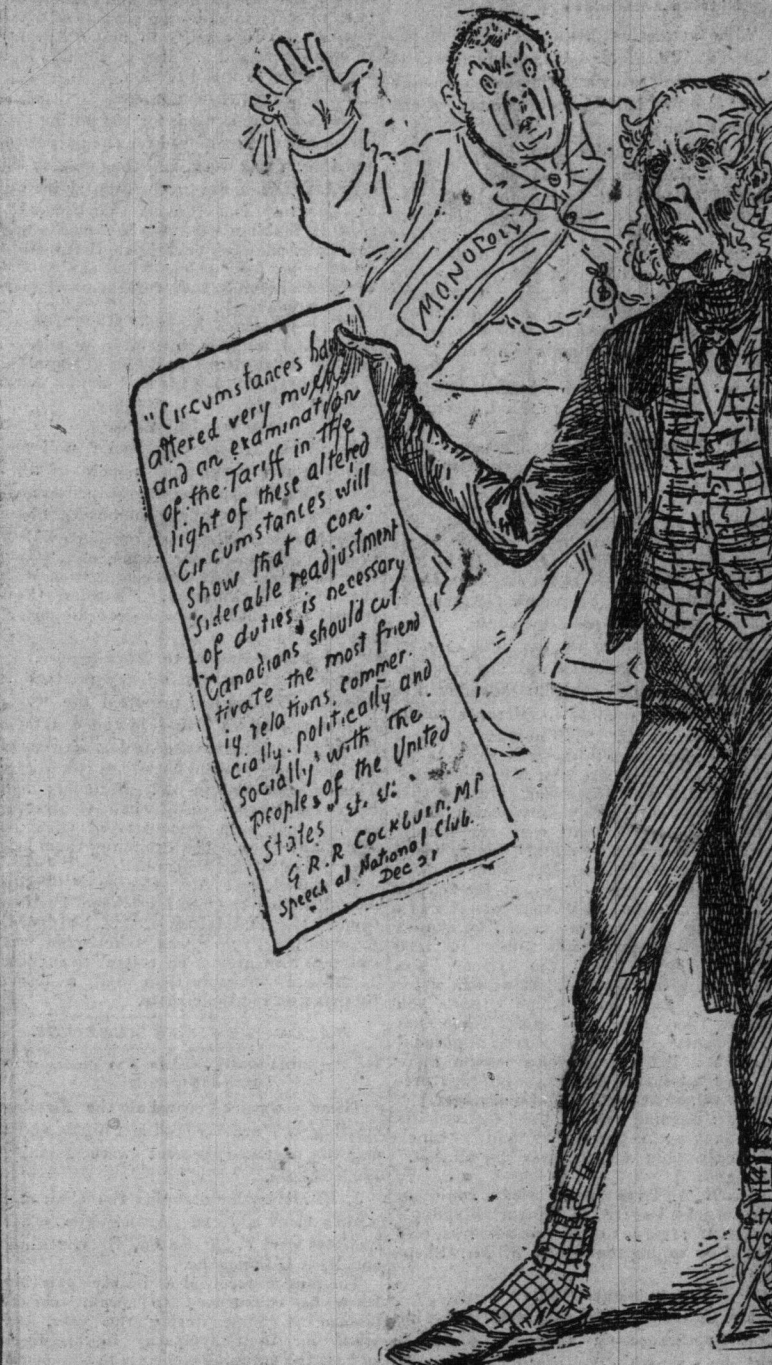 MONOPOLY
"Circumstances have
altered very much
and an examination
of the Tariff in the
light of these altered
Circumstances will
show that a con-
siderable readjustment
of duties is necessary
Canadians should cul
tivate the most friend
ly relations commer-
cially politically and
socially" with the
peoples of the United
States"
G R. R Cockburn, M P
speech at National Club.
Dec 21